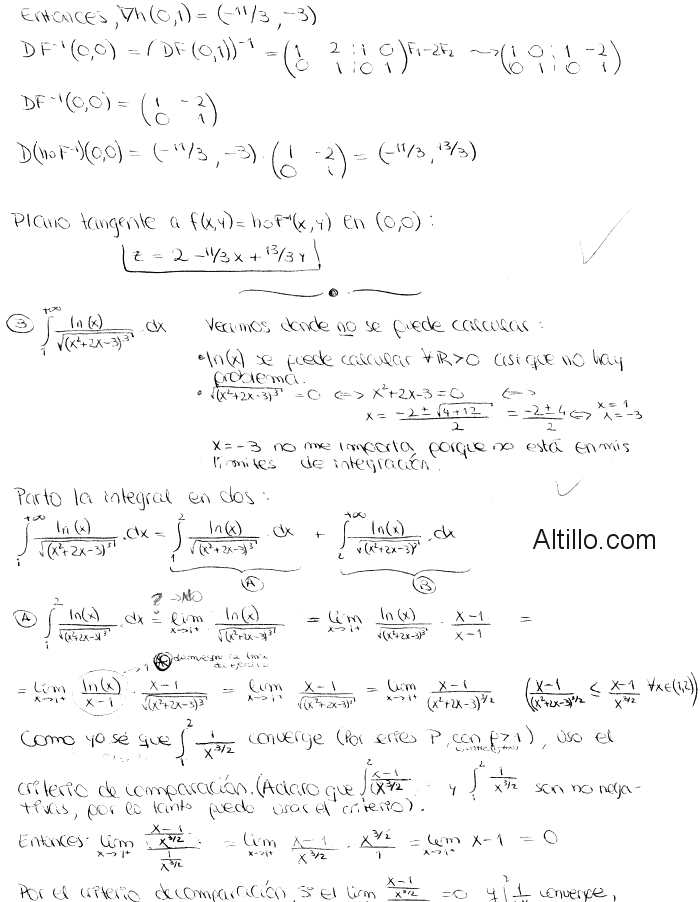 Entonces, ∇h(0,1) = (-11/3, -3)
DF⁻¹(0,0) = (DF(0,1))⁻¹ = (1 2 ⋮ 1 0 / 0 1 ⋮ 0 1) F₁-2F₂ ⇝ (1 0 ⋮ 1 -2 / 0 1 ⋮ 0 1)
DF⁻¹(0,0) = (1 -2 / 0 1)
D(hoF⁻¹)(0,0) = (-11/3, -3) · (1 -2 / 0 1) = (-11/3, 13/3)
Plano tangente a f(x,y) = hoF⁻¹(x,y) en (0,0):
z = 2 - 11/3 x + 13/3 y
③ ∫₁^{+∞} ln(x)/√(x²+2x-3)³ · dx Veamos donde no se puede calcular:
• ln(x) se puede calcular ∀ℝ>0 asi que no hay
problema.
• √(x²+2x-3)³ = 0 ⟺ x²+2x-3=0 ⟺
x = (-2 ± √(4+12))/2 = (-2 ± 4)/2 ⟺ x=1 x=-3
x=-3 no me importa porque no está en mis
límites de integración.
Parto la integral en dos:
∫₁^{+∞} ln(x)/√(x²+2x-3)³ · dx = ∫₁² ln(x)/√(x²+2x-3)³ · dx + ∫₂^{+∞} ln(x)/√(x²+2x-3)³ · dx
Ⓐ Ⓑ
Altillo.com
? → NO
Ⓐ ∫₁² ln(x)/√(x²+2x-3)³ · dx = lim x→1⁺ ln(x)/√(x²+2x-3)³ = lim x→1⁺ ln(x)/√(x²+2x-3)³ · (x-1)/(x-1) =
= lim x→1⁺ ln(x)/(x-1) · (x-1)/√(x²+2x-3)³ = lim x→1⁺ (x-1)/√(x²+2x-3)³ = lim x→1⁺ (x-1)/(x²+2x-3)^{3/2} ((x-1)/(x²+2x-3)^{3/2} ≤ (x-1)/x^{3/2} ∀x∈(1,2))
→ 1
Como yo sé que ∫₁² 1/x^{3/2} converge (Por series P, con p>1), uso el
criterio de comparación. (Aclaro que ∫₁² (x-1)/x^{3/2} y ∫₁² 1/x^{3/2} son no nega-
tivas, por lo tanto puedo usar el criterio).
Entonces: lim x→1⁺ ((x-1)/x^{3/2})/(1/x^{3/2}) = lim x→1⁺ (x-1)/x^{3/2} · x^{3/2}/1 = lim x→1⁺ x-1 = 0
Por el criterio de comparación, si el lim (x-1)/x^{3/2} = 0 y ∫² 1 converge,